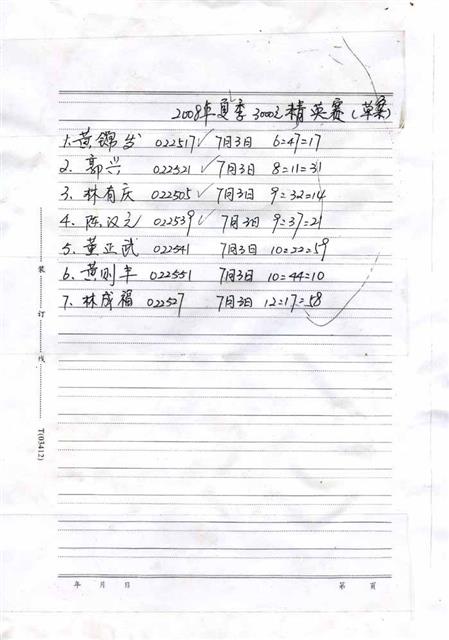 2008年夏季3000元精英赛(草案)
1.黄锦 022517✓ 7月3日 6=47=17
2、郭兴 022521✓ 7月3日 8=11=31
3、林有庆 022505✓ 7月3日 9=32=14
4、陈汉元 022539✓ 7月3日 9=37=21
5、董正武 022541 7月3日 10=22=59
6、黄刚 022551 7月3日 10=44=10
7、林成福 022527 7月3日 12=17=58
装
订
线
T(03412)
年 月 日 第 页